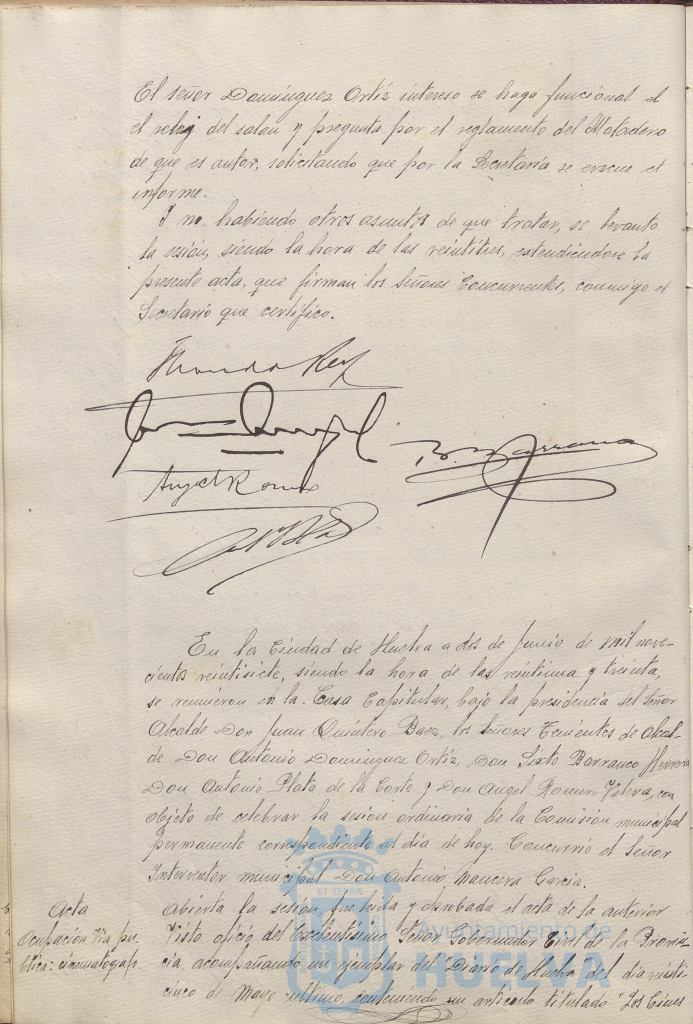 El Señor Domínguez Ortíz intereso se haga funcional el
el reloj del salon y pregunta por el reglamento del Matadero
de que es autor, solicitando que por la Secretaría se evacue el
informe.
Y no habiendo otros asuntos de que tratar, se levanto
la sesión, siendo la hora de las veintitres, extendiendose la
presente acta, que firman los Señores Concurrentes, conmigo el
Secretario que certifico.
B. Barranco
Angel Romero
En la Ciudad de Huelva a dos de Junio de mil nove-
cientos veintisiete, siendo la hora de las veintiuna y treinta,
se reunieron en la Casa Capitular, bajo la presidencia del Señor
Alcalde Don Juan Quintero Baez, los Señores Tenientes de Alcal-
de Don Antonio Domínguez Ortíz, Don Sixto Barranco Herrera
Don Antonio Plata de la Corte y Don Angel Romero Valera, con
objeto de celebrar la sesion ordinaria de la Comisión municipal
permanente correspondiente al día de hoy. Concurrió el Señor
Interventor municipal Don Antonio Mancera Garcia.
Acta
Abierta la sesión, fue leida y aprobada el acta de la anterior
Ocupación Via pu-
blica: cinematografo.
Visto oficio del Excelentísimo Señor Gobernador Civil de la Provin-
cia, acompañando un ejemplar del "Diario de Huelva" del día veinti-
cinco de Mayo ultimo, conteniendo un articulo titulado "Los Cines
ET TERRÆ
Ayuntamiento de
HUELVA